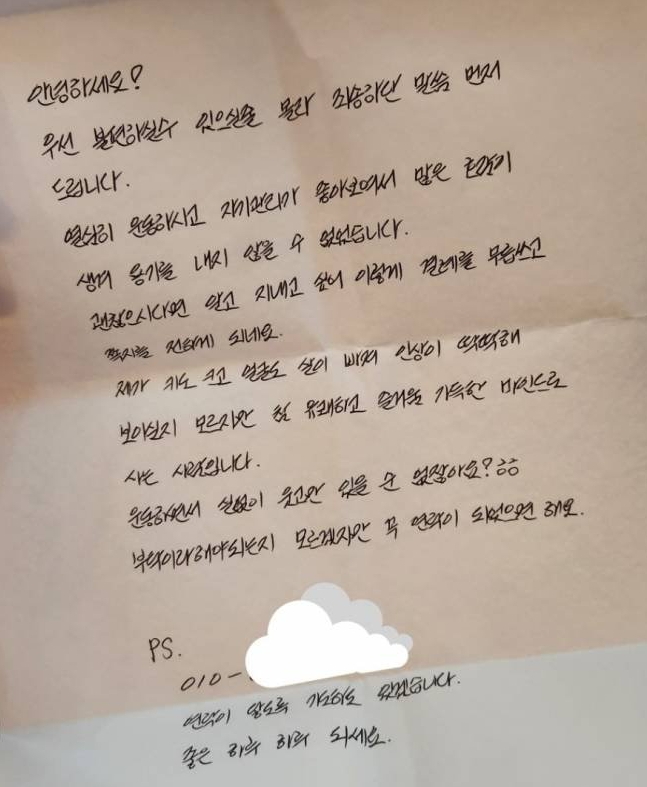 안녕하세요?
우선 불편하실수 있으실줄 몰라 죄송하단 말씀 먼저
드립니다.
열심히 운동하시고 자기관리가 좋아보여서 많은 호감이
생겨 용기를 내지 않을 수 없었습니다.
괜찮으시다면 알고 지내고 싶어 이렇게 결례를 무릅쓰고
쪽지를 전하게 되네요.
제가 키도 크고 얼굴도 살이 빠져 인상이 딱딱해
보이실지 모르지만 참 유쾌하고 즐거움 가득한 마인드로
사는 사람입니다.
운동하면서 실없이 웃고만 있을 수 없잖아요? ㅎㅎ
부탁이라해야되는지 모르겠지만 꼭 연락이 되었으면 해요.
PS.
010-
연락이 닿도록 기도하고 있겠습니다.
좋은 하루 하루 되세요.